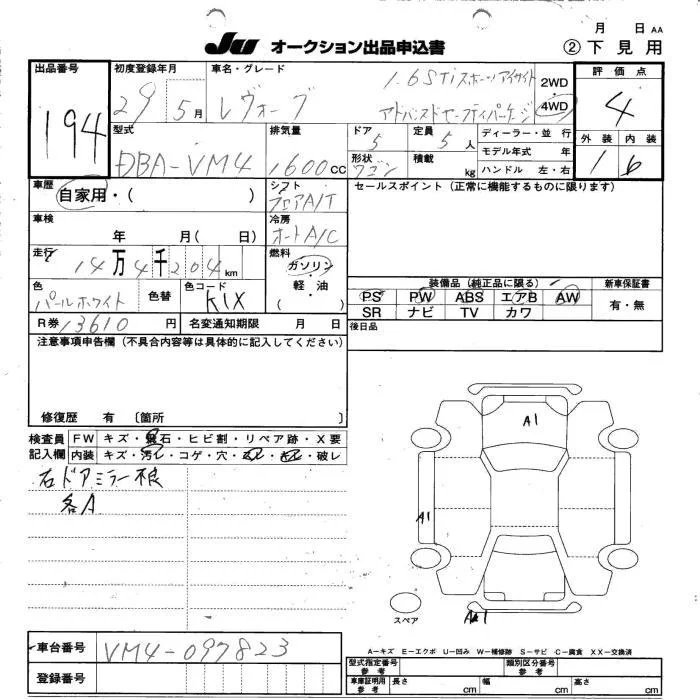 月 日 AA
Ju オークション出品申込書 ②下見用
出品番号 初度登録年月 車名・グレード 評価点
194 29 5月 レヴォーグ 1.6STiスポーツアイサイト アドバンスドセーフティパッケージ 2WD 4WD 4
型式 排気量 ドア 定員 ディーラー・並行 外装 内装
DBA-VM4 1600cc 5 5人 モデル年式 年 1 b
形状 ワゴン 積載 kg ハンドル 左・右
車歴 シフト セールスポイント(正常に機能するものに限ります)
自家用・( ) フロアA/T
車検 冷房
年 月( 日) オートA/C
走行 燃料
14万4千204km ガソリン・軽・油( )
装備品(純正品に限る) 新車保証書
色 色替 色コード PS PW ABS エアB AW 有・無
パールホワイト K1X SR ナビ TV カワ
R券 13610円 名変通知期限 月 日 後日品
注意事項申告欄(不具合内容等は具体的に記入してください)
修復歴 有 〔箇所 〕
検査員 FW キズ・飛石・ヒビ割・リペア跡・X要
記入欄 内装 キズ・汚レ・コゲ・穴・・破レ
右ドアミラー根
各A
A1
A1
A1
スペア
車台番号 VM4-097823
登録番号
A-キズ E-エクボ U-凹み W-補修跡 S-サビ C-腐食 XX-交換済
型式指定番号 参考 類別区分番号 参考
車庫証明用 参考 長さ 幅 高さ